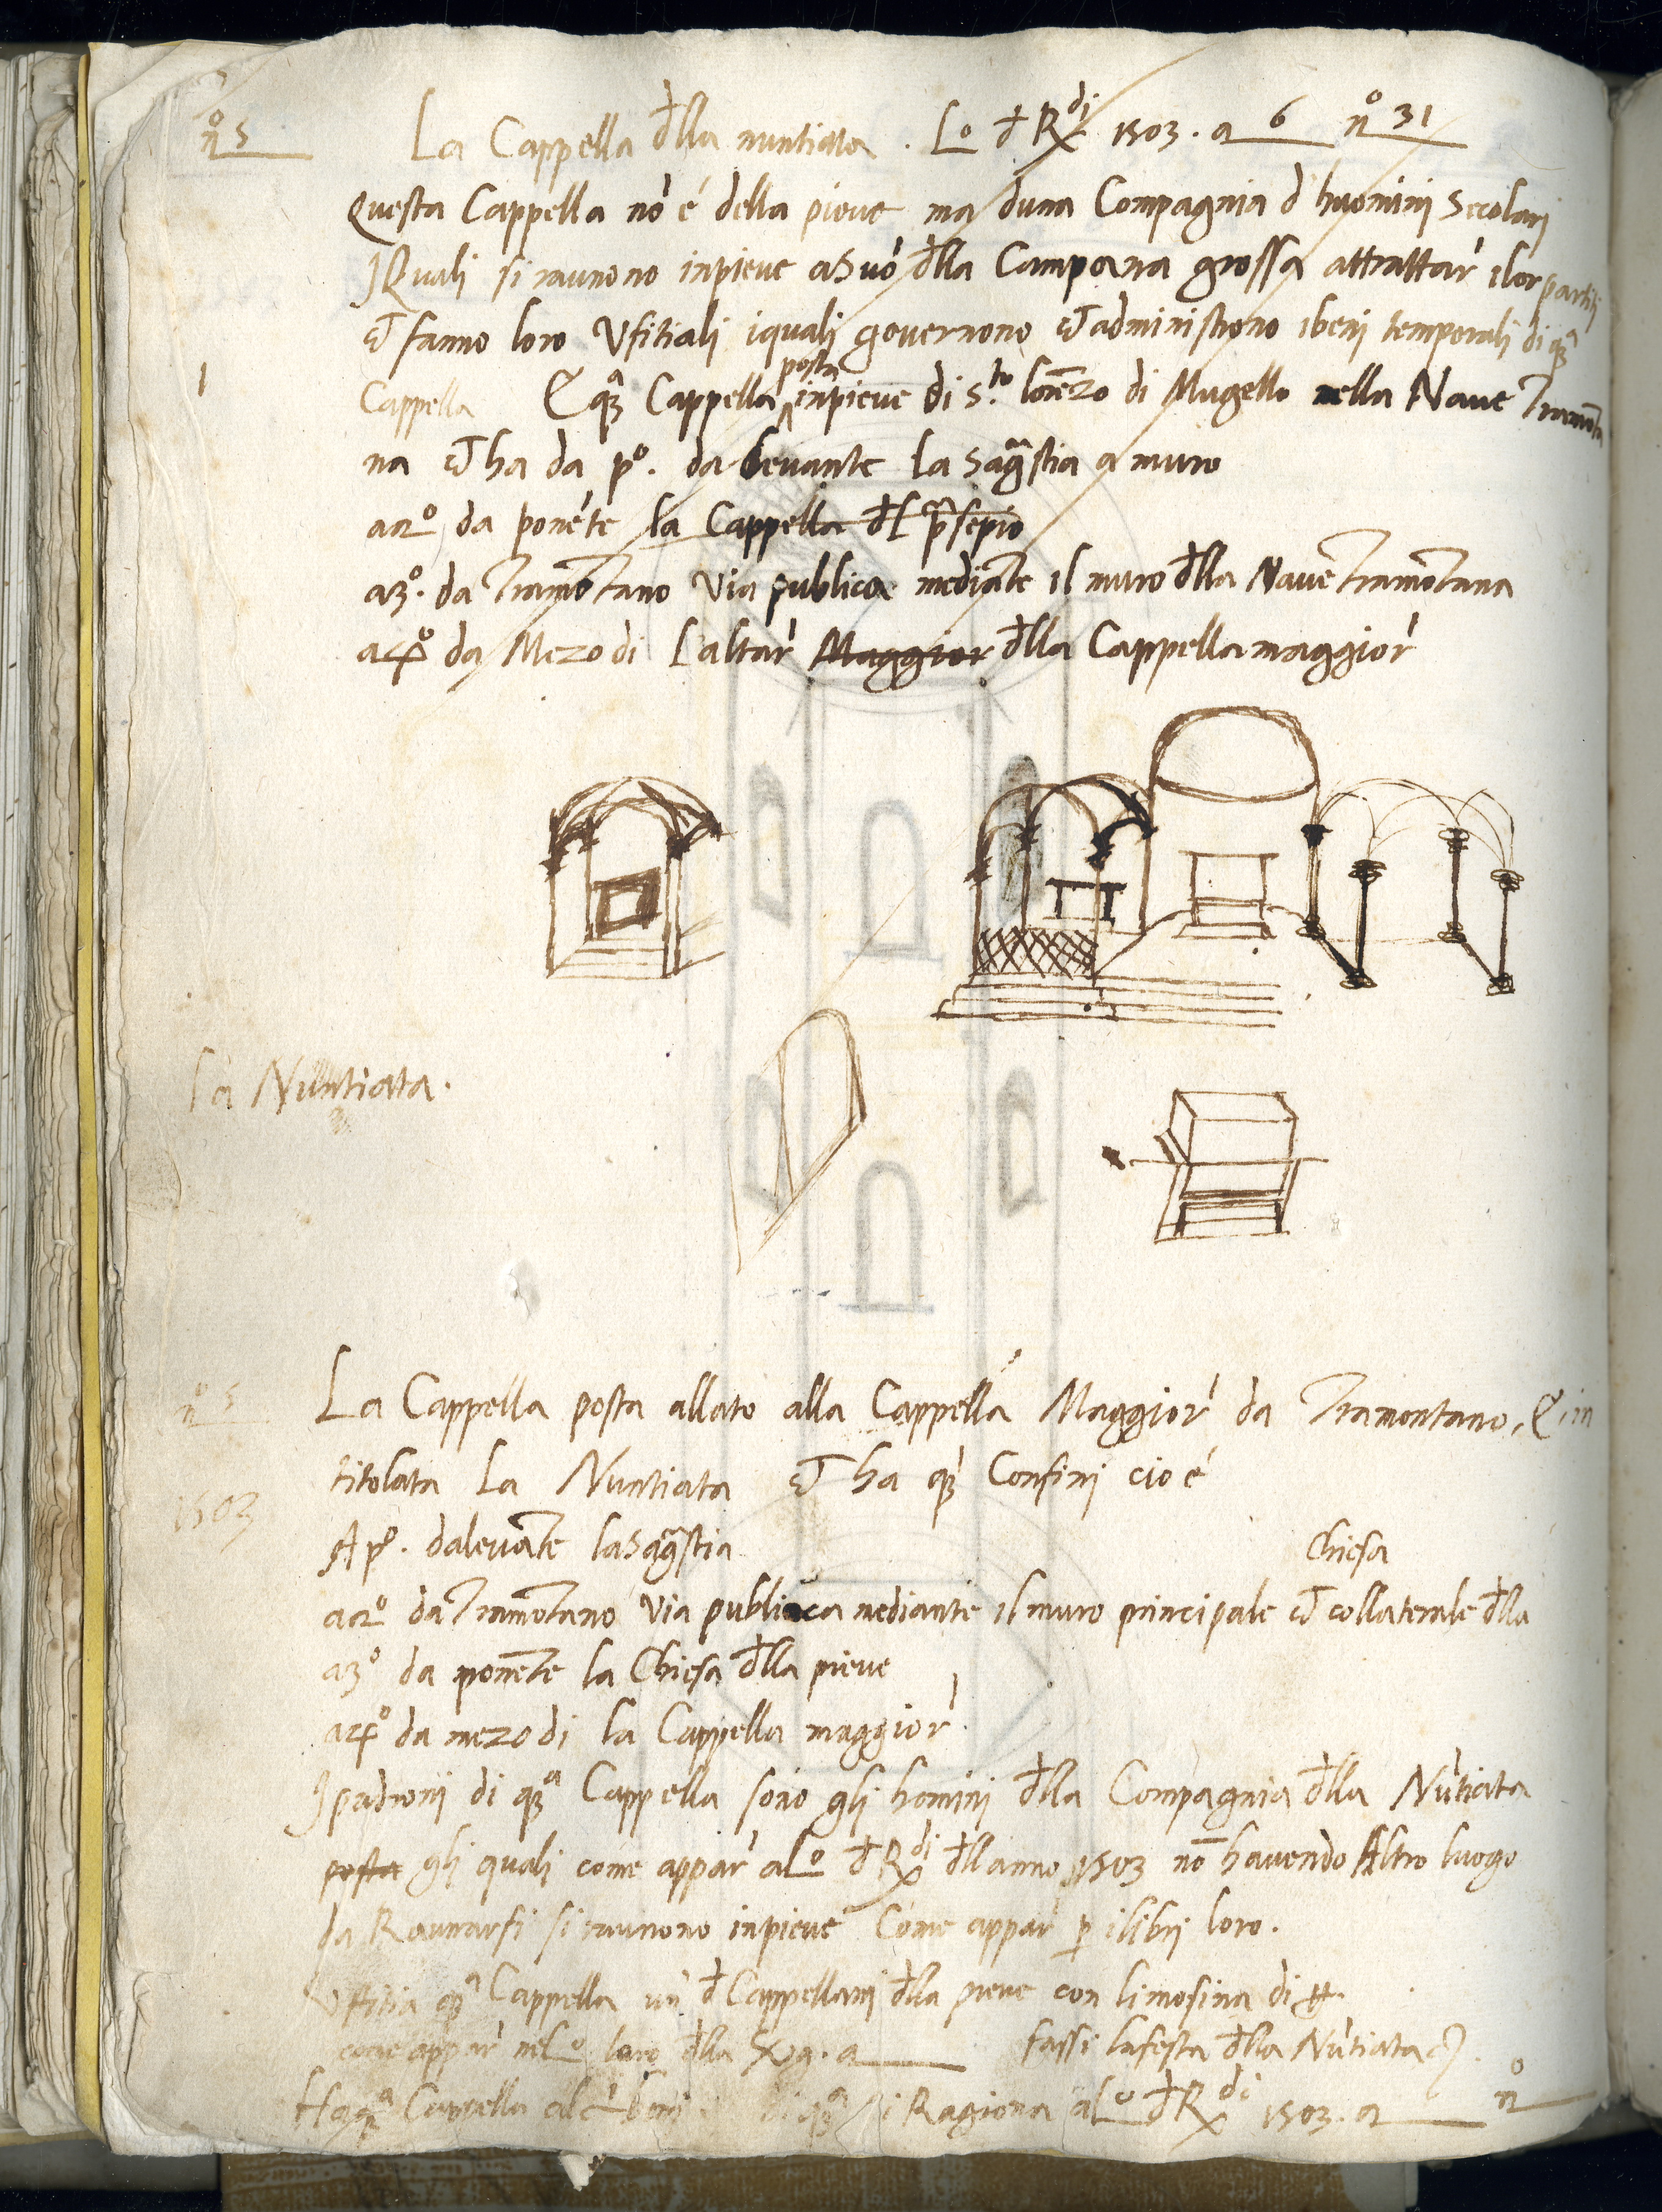 nº 5
La Cappella đlla nuntiata . Lº đ Rdi 1503 . a 6 nº 31
Questa Cappella nō é della pieve ma duna Compagnia d huomini Secolari
J Quali si raunono inpieve a Suō đlla Campana grossa attrattar̄ ilor partiti
& fanno loro Ufitiali iquali governono & administrono i beni temporali di qᵃ
1
Cappella E qᵃ Cappella posta inpieve di S.to lorēzo di Mugello nella Nave Tramōta
na & ha da pº . da Levante la Sagrestia a muro
a 2º da ponēte la Cappella đl p̄sepio
a 3º . da Tramōtano via publica mediāte il muro đlla Nave Tramōtana
a 4º da Mezodi Laltar̄ Maggior đlla Cappella maggior̄
La Nuntiata .
nº 5
La Cappella posta allato alla Cappella Maggior̄ da Tramontano , E in
titolata La Nuntiata & ha q̄ Confini cio é
1503
A pº . dalevāte la Sagrestia
Chiesa
a 2º da Tramōtano via publica mediante il muro principale & collaterale đlla
a 3º da ponēte la Chiesa đlla pieve
a 4º da mezodi la Cappella maggior̄ .
J padroni di qᵃ Cappella sono gli homini đlla Compagnia đlla Nūtiata
posta gli quali come appar̄ a Lº đ Rdi đllanno 1503 nō havendo Altro luogo
da Raunarsi si raunono inpieve Come appar̄ p ilibri loro .
Ufitia qᵃ Cappella un đ Cappellani đlla pieve con limosina di
come appar̄ nel Lº loro đlla a fassi lafesta đlla Nūtiata
Ha qᵃ Cappella beni di qᵃ si Ragiona al Lº đ Rdi 1503 . a nº